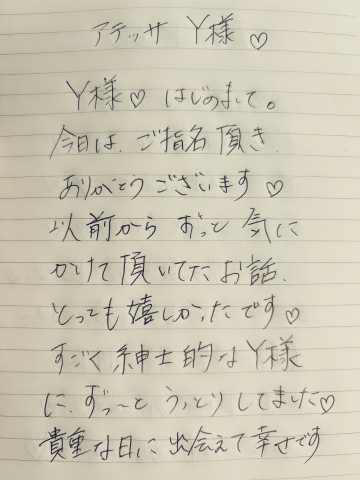 アテッサ Y様♡
Y様♡ はじめまして。
今日は、ご指名頂き
ありがとうございます♡
以前から ずっと 気に
かけて頂いてたお話、
とっても嬉しかったです♡
すごく紳士的なY様
に、ずっ〜と うっとりしてました♡
貴重な日に出会えて幸せです